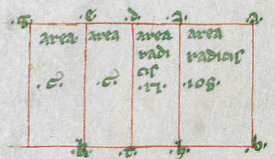 .g. .e. .d. .z. .a.
area
.c.
area
.c.
area
radi
cis
.17.
area
radicis
.105.
.k. .t. .h. .b.